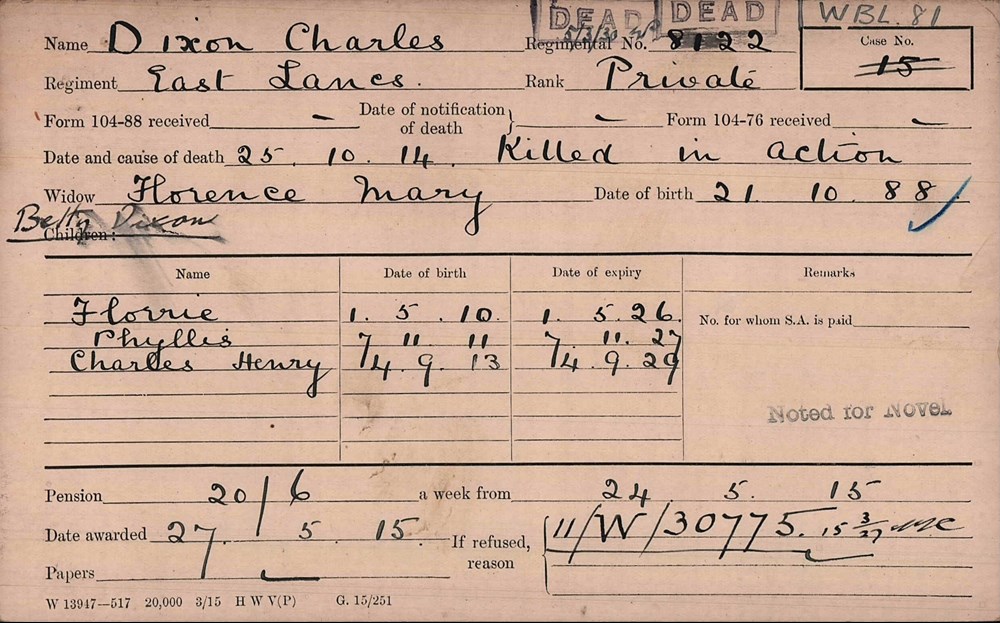 DEAD DEAD WBL. 81
Name Dixon Charles Regimental No. 8122 Case No.
5/3/30
Regiment East Lancs. Rank Private 15
Form 104-88 received — Date of notification of death } — Form 104-76 received —
Date and cause of death 25. 10. 14. Killed in action
Widow Florence Mary Date of birth 21. 10. 88.
Betty Dixon
Children:
Name Date of birth Date of expiry Remarks
Florrie 1. 5. 10. 1. 5. 26.
No. for whom S.A. is paid
Phyllis 7. 11. 11 7. 11. 27
Charles Henry 4. 9. 13 4. 9. 29
Noted for Novel
Pension 20/6 a week from 24. 5. 15
Date awarded 27. 5. 15. If refused, reason 11/W/30775. 15 3/27
Papers —
W 13947—517 20,000 3/15 H W V(P) G. 15/251